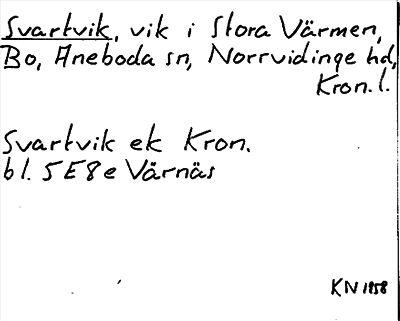 Svartvik, vik i Stora Värmen,
Bo, Aneboda sn, Norrvidinge hd,
Kron. l.
Svartvik ek Kron.
bl. 5E8e Värnäs
KN 1958